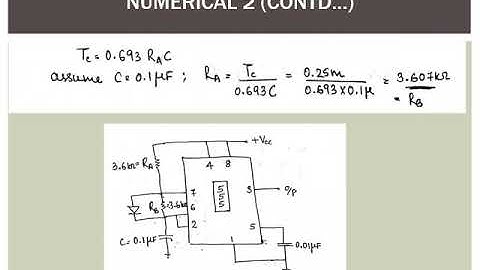 NUMERICAL 2 (CONTD...)
Tc = 0.693 RAC
assume C = 0.1μF ; RA = Tc / 0.693C = 0.25m / 0.693×0.1μ = 3.607kΩ
= RB
+Vcc
3.6kΩ = RA
4 8
7
555
3 O/P
RB =3.6kΩ
6
2
5
C = 0.1μF
1
0.01μF